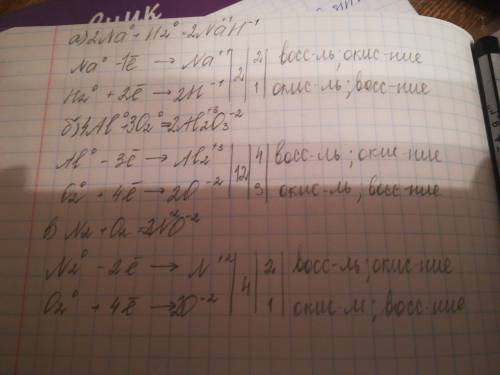 а) 2Na⁰ + H₂⁰ = 2Na⁺¹H⁻¹
Na⁰ - 1ē → Na⁺¹ | 2 | 2 | восс-ль; окис-ние
H₂⁰ + 2ē → 2H⁻¹ | 1 | окис-ль; восс-ние
б) 4Al⁰ + 3O₂⁰ = 2Al₂⁺³O₃⁻²
Al⁰ - 3ē → Al₂⁺³ | 12 | 4 | восс-ль; окис-ние
O₂⁰ + 4ē → 2O⁻² | 3 | окис-ль, восс-ние
в) N₂ + O₂ = 2N⁺²O⁻²
N₂⁰ - 2ē → N⁺² | 4 | 2 | восс-ль; окис-ние
O₂⁰ + 4ē → 2O⁻² | 1 | окис-л; восс-ние